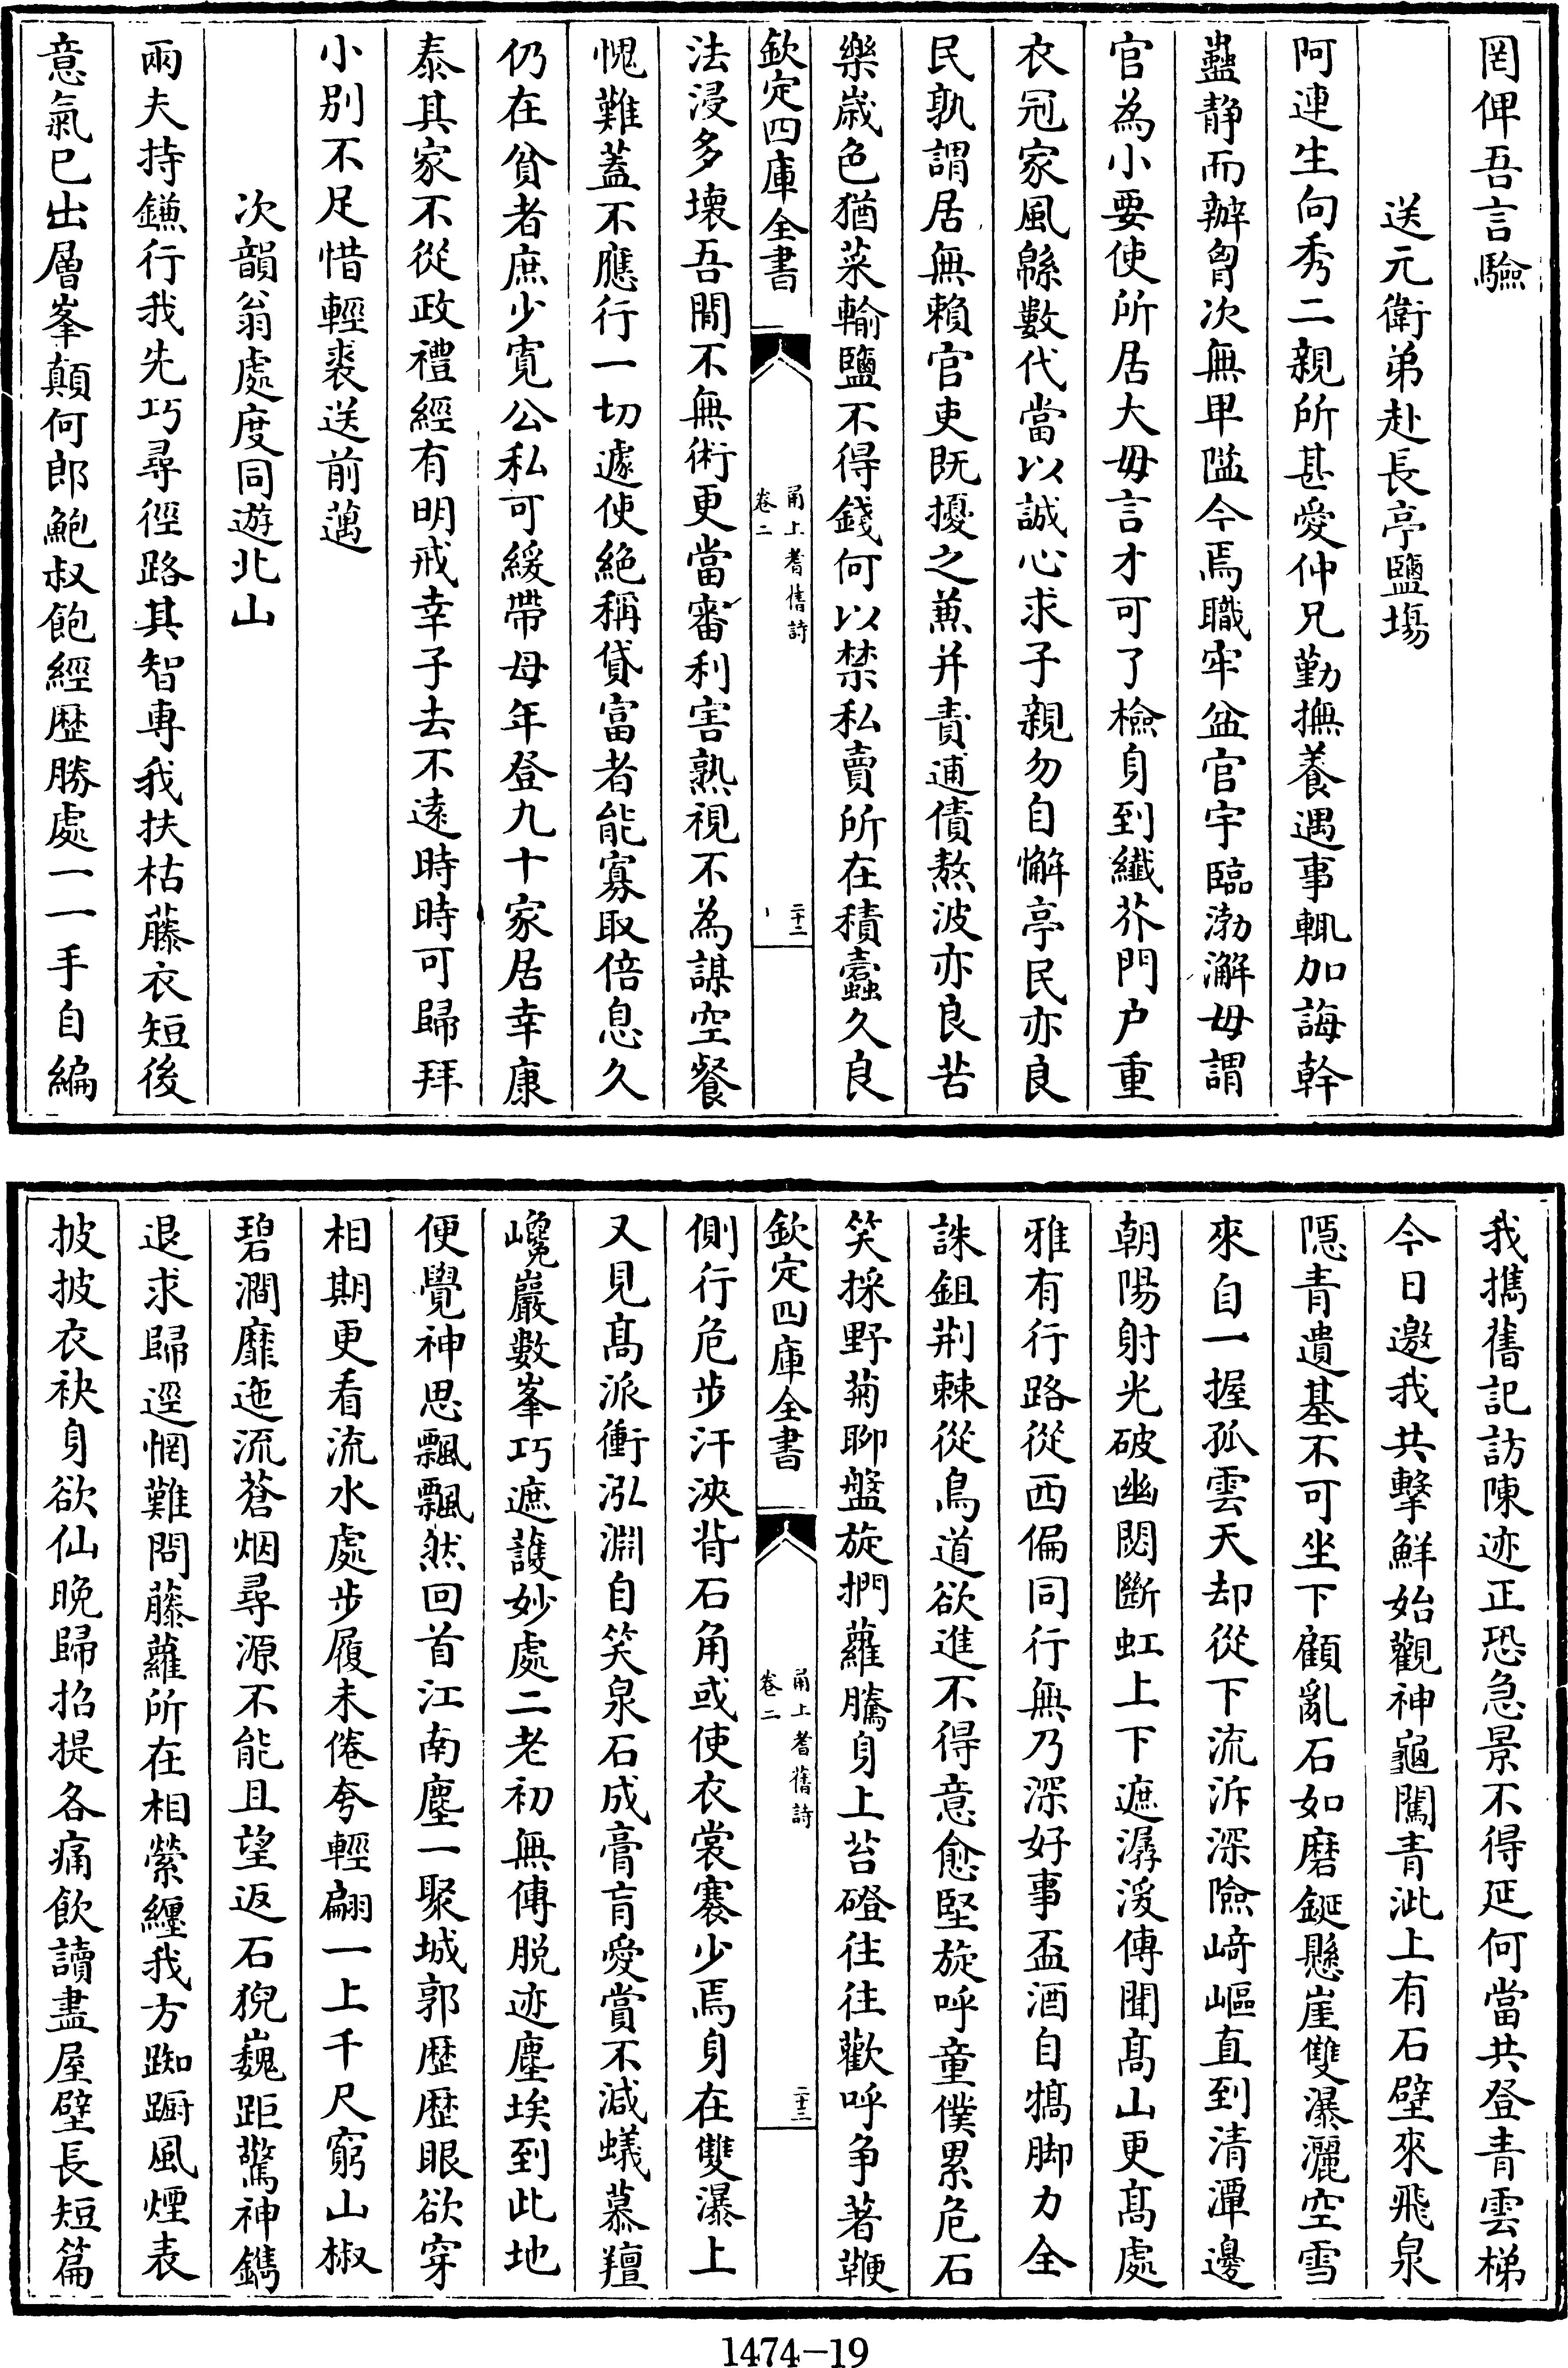 罔俾吾言驗
送元衛弟赴長亭鹽塲
阿連生向秀二親所甚愛仲兄勤撫養遇事輒加誨幹
蠱静而辦胷次無畀隘今焉職牢盆官宇臨渤澥毋謂
官為小要使所居大毋言才可了檢身到纎芥門户重
衣冠家風緜數代當以誠心求子親勿自懈亭民亦良
民孰謂居無賴官吏既擾之兼并責逋債熬波亦良苦
樂歳色猶菜輸鹽不得錢何以禁私賣所在積蠧久良
欽定四庫全書
甬上耆舊詩
卷二
二十二
法浸多壊吾聞不無術更當審利害熟視不為謀空餐
愧難蓋不應行一切遽使絶稱貸富者能寡取倍息久
仍在貧者庶少寛公私可緩帶母年登九十家居幸康
泰其家不從政禮經有明戒幸子去不逺時時可歸拜
小别不足惜輕裘送前邁
次韻翁處度同遊北山
兩夫持鎌行我先巧尋徑路其智専我扶枯藤衣短後
意氣已出層峯顛何郎鮑叔飽經歴勝處一一手自編
我攜舊記訪陳迹正恐急景不得延何當共登青雲梯
今日邀我共擊鮮始觀神龜闖青泚上有石壁來飛泉
隠青遺基不可坐下顧亂石如磨鋋懸崖雙瀑灑空雪
來自一握孤雲天却從下流泝深險﨑嶇直到清潭邊
朝陽射光破幽閟斷虹上下遮潺湲傳聞髙山更髙處
雅有行路從西偏同行無乃深好事盃酒自犒脚力全
誅鉏荆棘從鳥道欲進不得意愈堅旋呼童僕累危石
笑採野菊聊盤旋捫蘿騰身上苔磴往往歡呼争著鞭
欽定四庫全書
甬上耆舊詩
卷二
二十三
側行危步汗浹背石角或使衣裳褰少焉身在雙瀑上
又見髙派衝泓淵自笑泉石成膏肓愛賞不減蟻慕羶
巉巖數峯巧遮護妙處二老初無傳脱迹塵埃到此地
便覺神思飄飄然回首江南塵一聚城郭歴歴眼欲穿
相期更看流水處步履未倦夸輕翩一上千尺窮山椒
碧澗靡迤流蒼烟尋源不能且望返石猊巍距驚神鐫
退求歸逕惘難問藤蘿所在相縈纒我方踟蹰風煙表
披披衣袂身欲仙晚歸招提各痛飲讀盡屋壁長短篇
1474-19